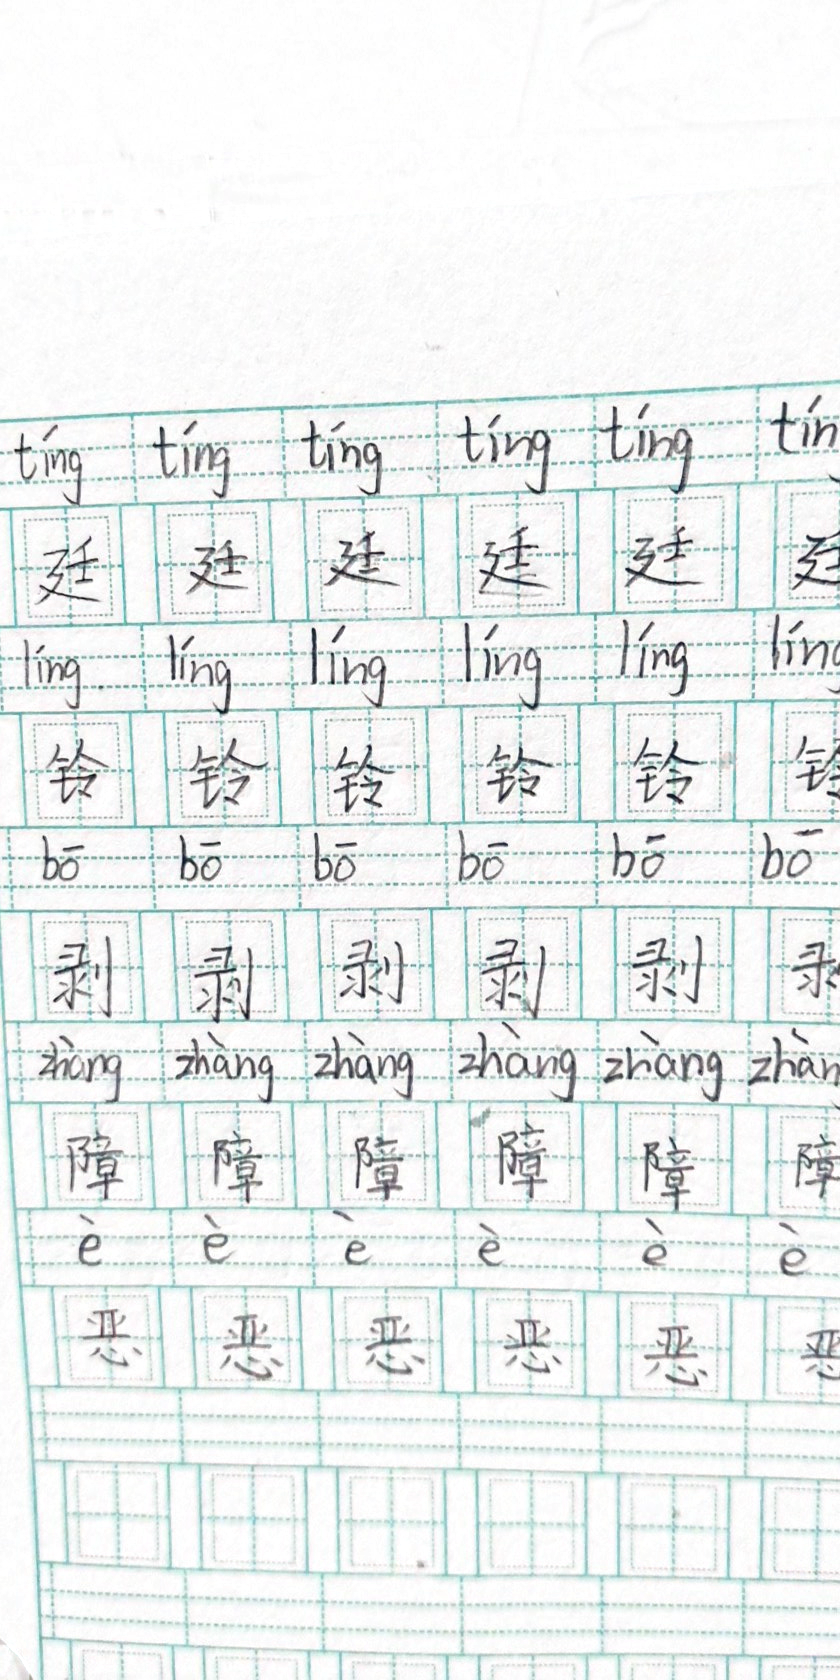 tíng tíng tíng tíng tíng tín
廷 廷 廷 廷 廷 廷
líng líng líng líng líng líng
铃 铃 铃 铃 铃 铃
bō bō bō bō bō bō
剥 剥 剥 剥 剥
zhàng zhàng zhàng zhàng zhàng zhàn
障 障 障 障 障 障
è è è è è è
恶 恶 恶 恶 恶 恶